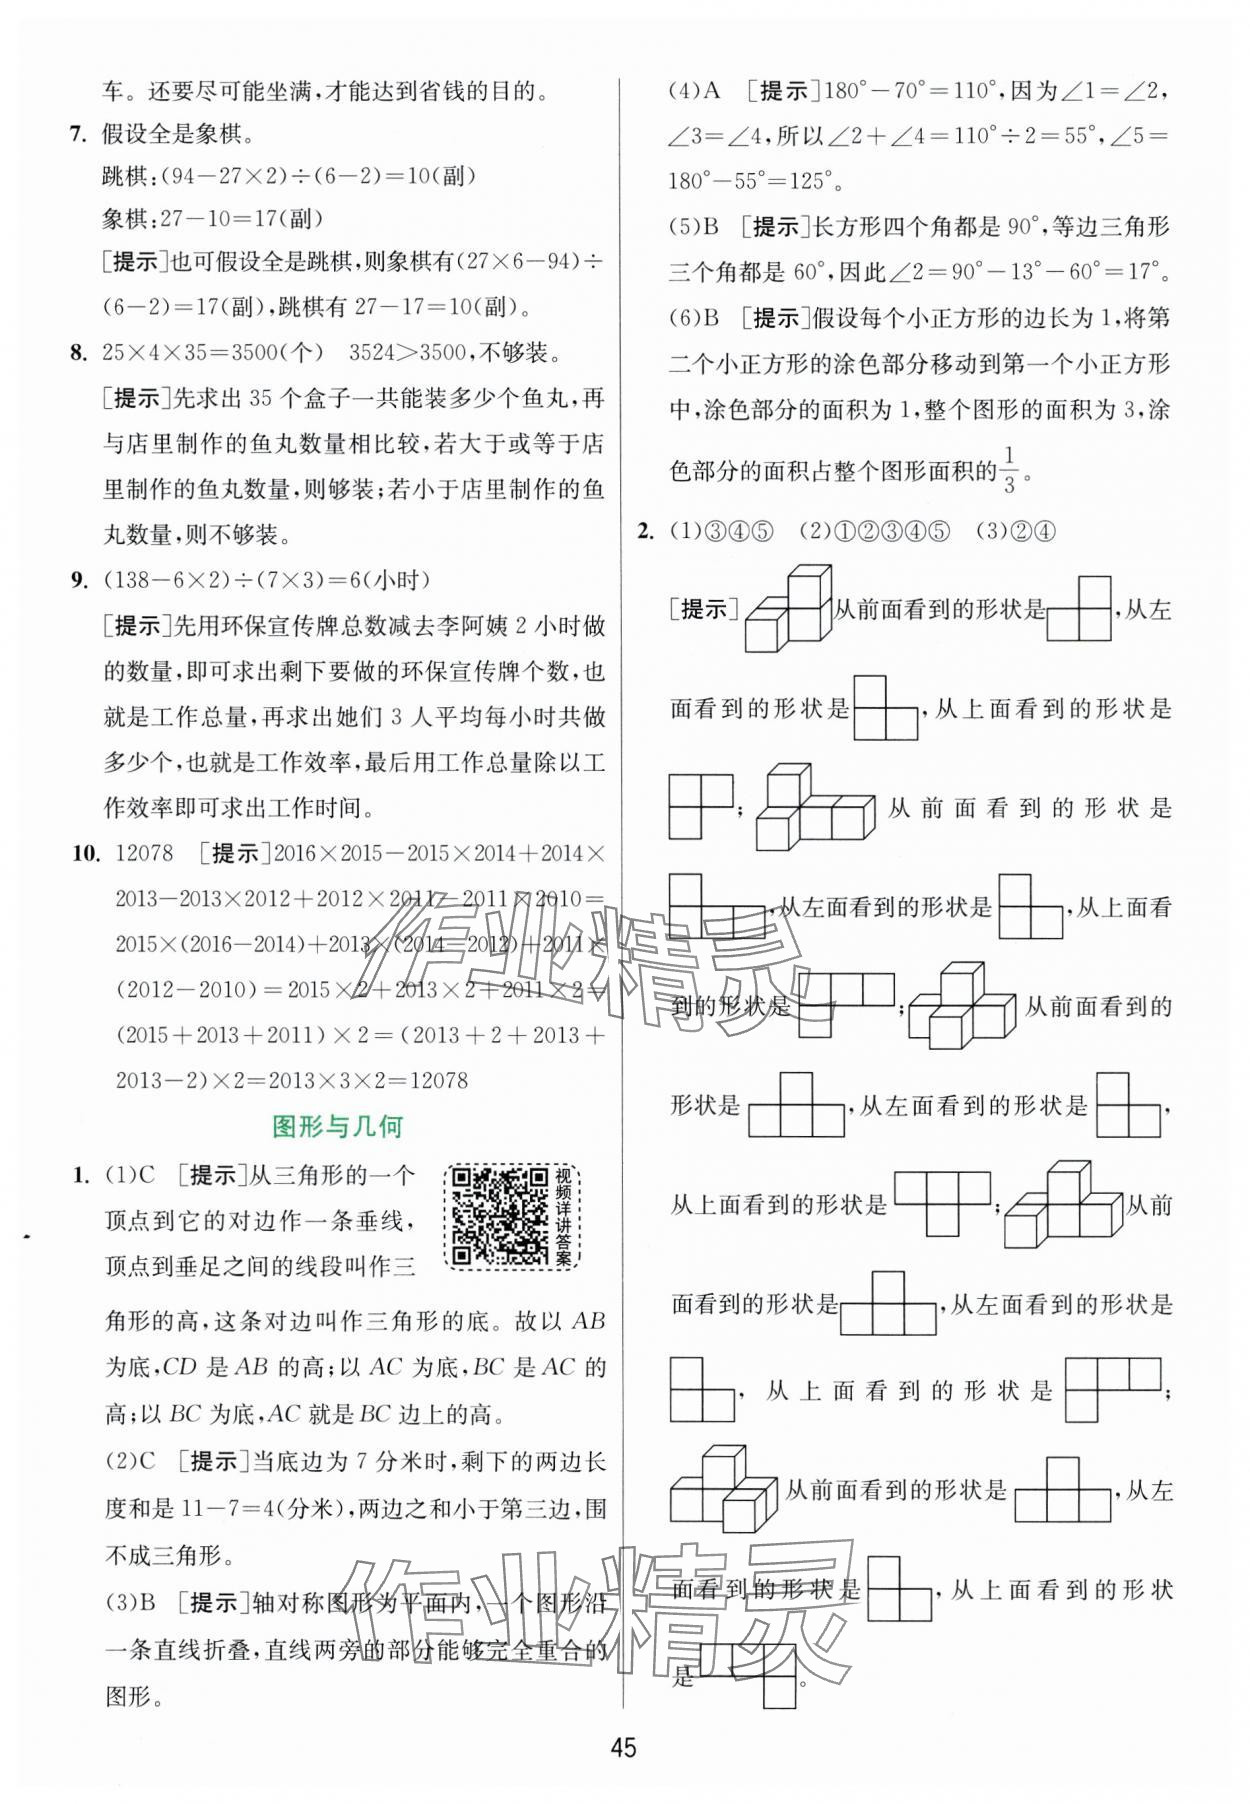 车。还要尽可能坐满,才能达到省钱的目的。
7. 假设全是象棋。
跳棋:(94−27×2)÷(6−2)=10(副)
象棋:27−10=17(副)
[提示]也可假设全是跳棋,则象棋有(27×6−94)÷
(6−2)=17(副),跳棋有 27−17=10(副)。
8. 25×4×35=3500(个) 3524>3500,不够装。
[提示]先求出 35 个盒子一共能装多少个鱼丸,再
与店里制作的鱼丸数量相比较,若大于或等于店
里制作的鱼丸数量,则够装;若小于店里制作的鱼
丸数量,则不够装。
9. (138−6×2)÷(7×3)=6(小时)
[提示]先用环保宣传牌总数减去李阿姨 2 小时做
的数量,即可求出剩下要做的环保宣传牌个数,也
就是工作总量,再求出她们 3 人平均每小时共做
多少个,也就是工作效率,最后用工作总量除以工
作效率即可求出工作时间。
10. 12078 [提示]2016×2015−2015×2014+2014×
2013−2013×2012+2012×2011−2011×2010=
2015×(2016−2014)+2013×(2014−2012)+2011×
(2012−2010)=2015×2+2013×2+2011×2=
(2015+2013+2011)×2=(2013+2+2013+
2013−2)×2=2013×3×2=12078
图形与几何
1. (1)C [提示]从三角形的一个
顶点到它的对边作一条垂线,
顶点到垂足之间的线段叫作三
视频详讲答案
角形的高,这条对边叫作三角形的底。故以 AB
为底,CD 是 AB 的高;以 AC 为底,BC 是 AC 的
高;以 BC 为底,AC 就是 BC 边上的高。
(2)C [提示]当底边为 7 分米时,剩下的两边长
度和是 11−7=4(分米),两边之和小于第三边,围
不成三角形。
(3)B [提示]轴对称图形为平面内,一个图形沿
一条直线折叠,直线两旁的部分能够完全重合的
图形。
(4)A [提示]180°−70°=110°,因为∠1=∠2,
∠3=∠4,所以∠2+∠4=110°÷2=55°,∠5=
180°−55°=125°。
(5)B [提示]长方形四个角都是 90°,等边三角形
三个角都是 60°,因此∠2=90°−13°−60°=17°。
(6)B [提示]假设每个小正方形的边长为 1,将第
二个小正方形的涂色部分移动到第一个小正方形
中,涂色部分的面积为 1,整个图形的面积为 3,涂
色部分的面积占整个图形面积的1/3。
2. (1)③④⑤ (2)①②③④⑤ (3)②④
[提示] 从前面看到的形状是 ,从左
面看到的形状是 ,从上面看到的形状是
; 从前面看到的形状是
,从左面看到的形状是 ,从上面看
到的形状是 ; 从前面看到的
形状是 ,从左面看到的形状是 ,
从上面看到的形状是 ; 从前
面看到的形状是 ,从左面看到的形状是
,从上面看到的形状是 ;
从前面看到的形状是 ,从左
面看到的形状是 ,从上面看到的形状
是 。
作业精灵
作业精灵
45